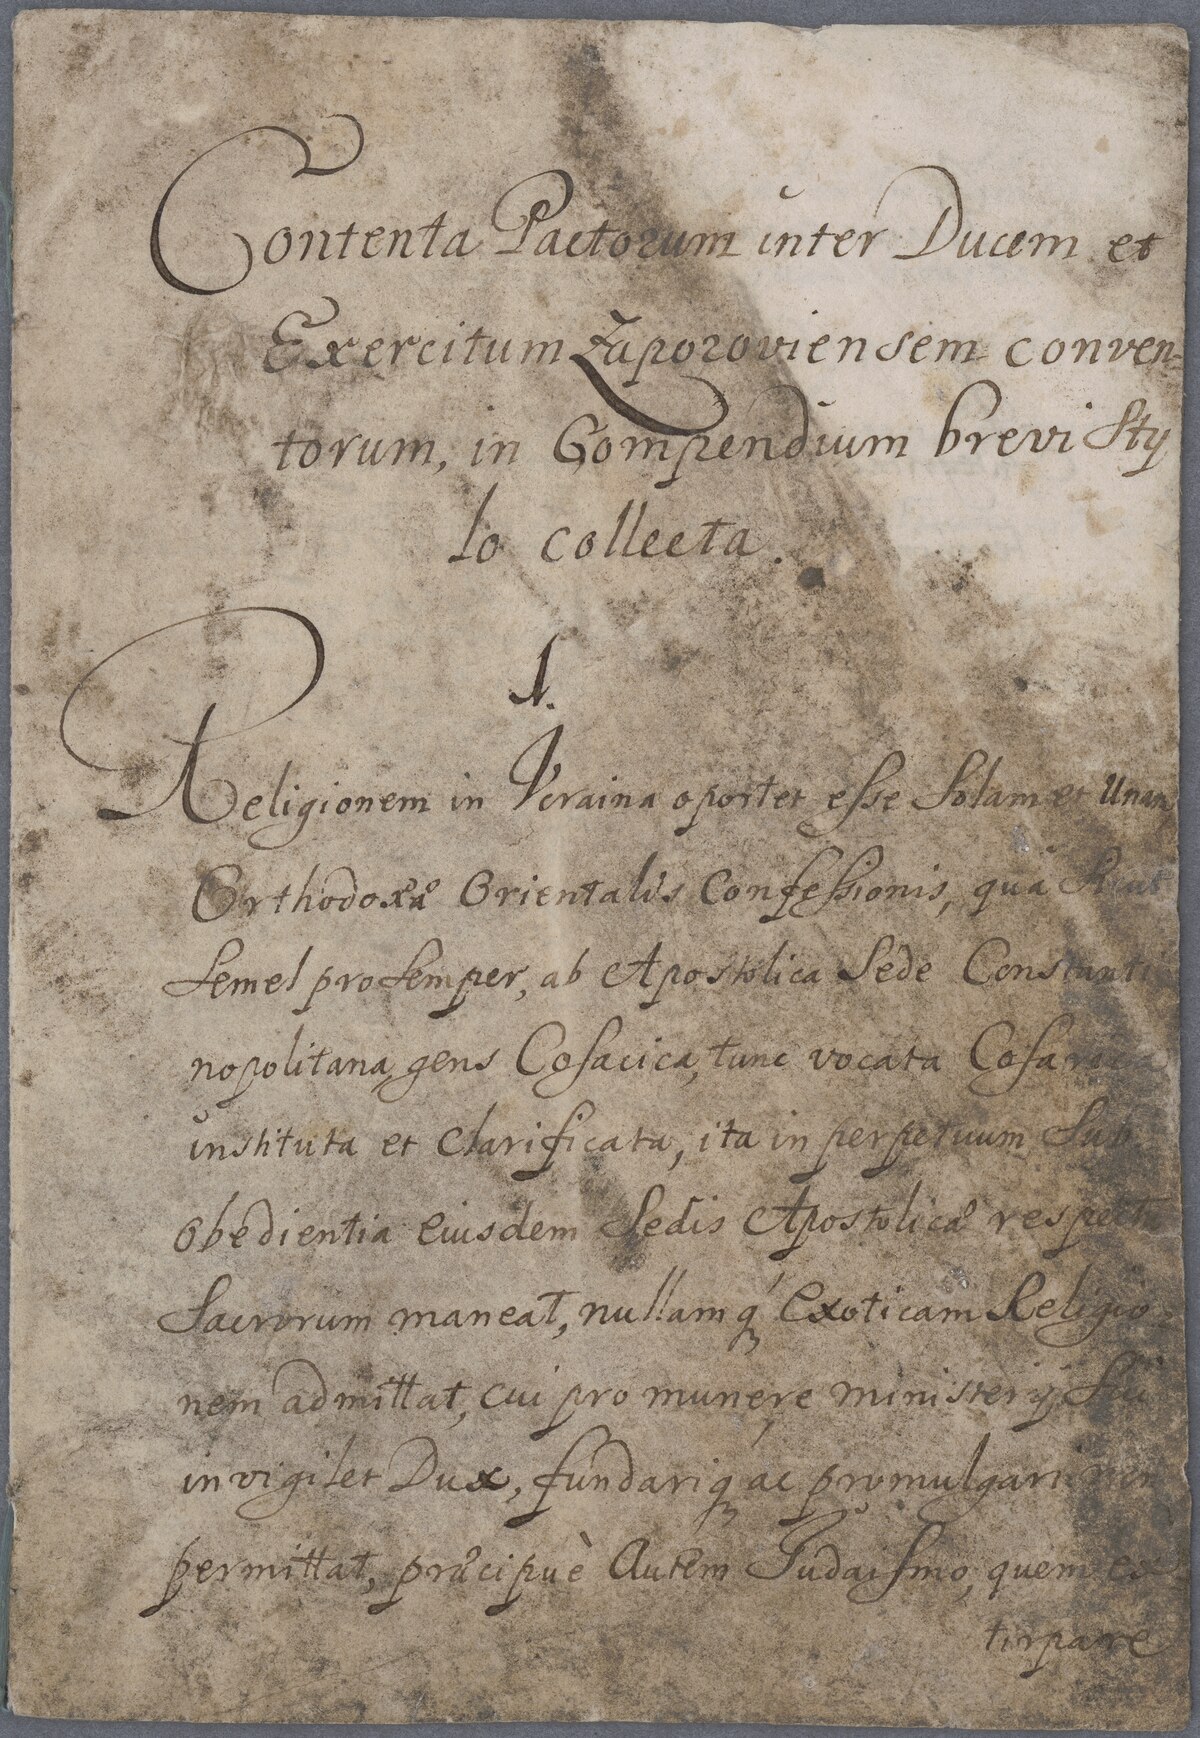 Contenta Pactorum inter Ducem et
Exercitum Zaporoviensem conven-
torum, in Compendium brevi Sty
lo collecta.
1.
Religionem in Vcraina oportet esse Solam et Unam
Orthodoxæ Orientalis Confessionis, quâ Sicut
Semel pro Semper, ab Apostolica Sede Constanti
nopolitana gens Cosacica, tunc vocata
instituta et Clarificata, ita in perpetuum Sub
obedientia eiusdem Sedis Apostolicæ respectu
Sacrorum maneat, nullamq́ exoticam Religio-
nem admittat, cui pro munere ministerij Sui
invigilet Dux, fundariq ac promulgari non
permittat, præcipuè Autem Judaismo, quem ex
tirpare